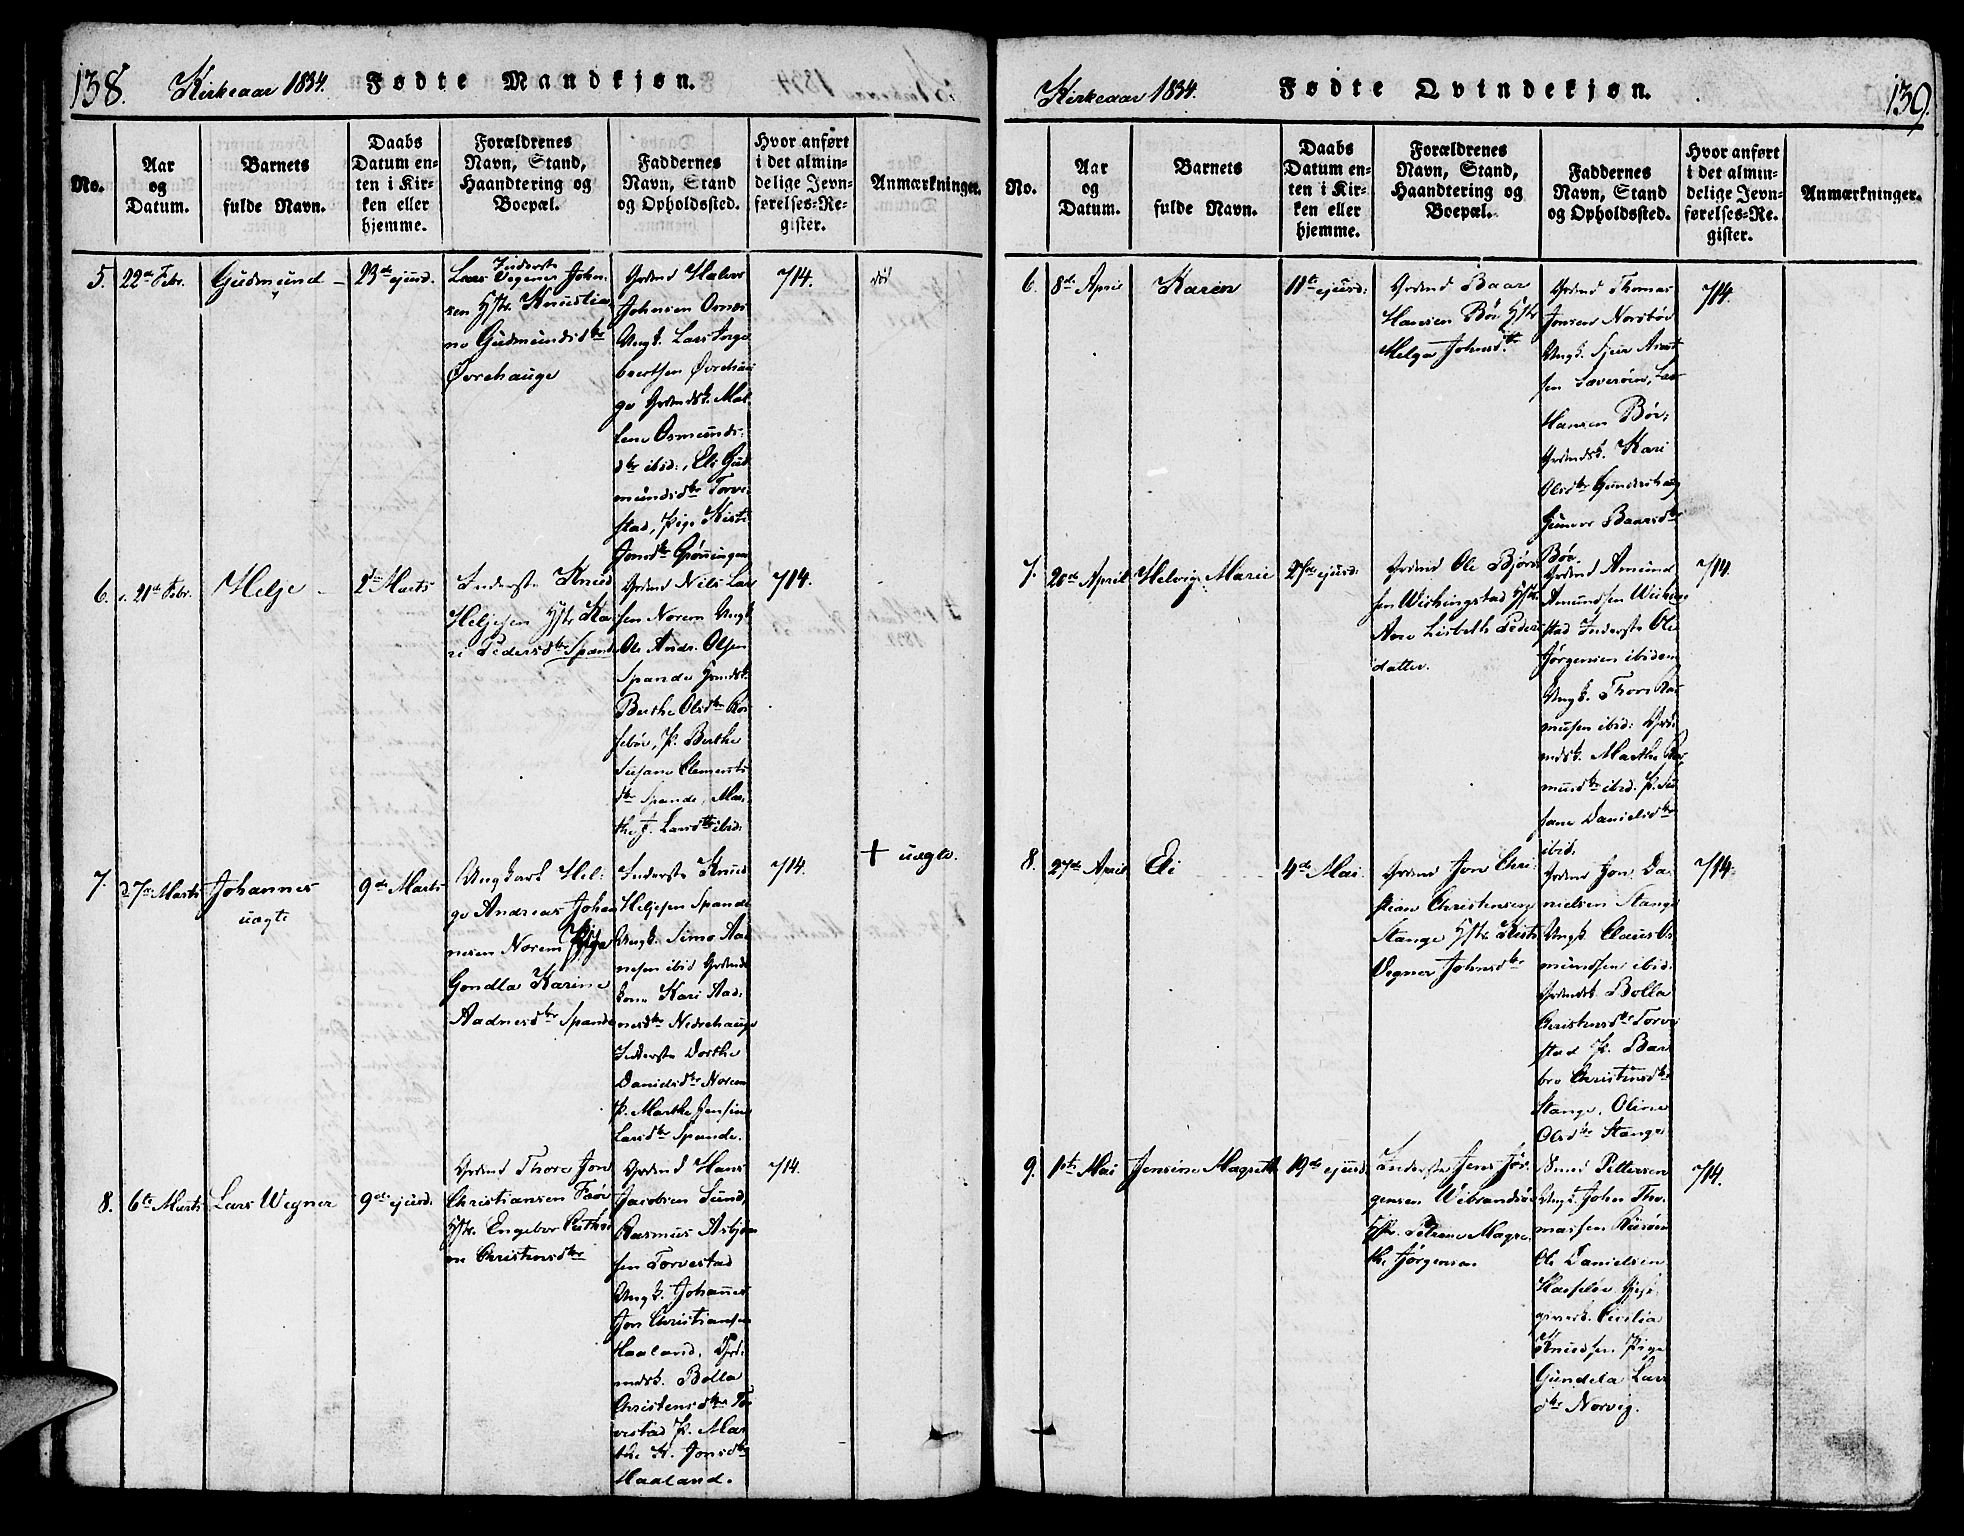 138.
Kirkeaar 1834.
Fødte Mandkjøn.
No.
Aar
og
Datum.
Barnets
fulde Navn.
Daabs
Datum en-
ten i Kir-
ken eller
hjemme.
Forældrenes
Navn, Stand,
Haandtering og
Boepæl.
Faddernes
Navn, Stand
og Opholdssted.
Hvor anført
i det almin-
delige Jevn-
førelses-Re-
gister.
Anmærkninger.
5.
22de Febr.
Gudmund
23de ejusd.
Inderste
Lars Vegner John-
sen Hstr. Knustian
ne Gudmundsdtr
Øvrehauge
Grdmd Halvor
Johnsen Osnes
Ungk. Lars Torge
bertsen Øvrehau
ge Grdmdsk. Mal
lene Osmunds-
dtr ibid:, Eli Gud
mundsdtr Torve-
stad, Pige Kisti
Jonsdtr Grønningen
714.
død
6.
21de Febr.
Helje
2den Marts
Inderste Knud
Heljesen Hstr Ka
ri Pedersdtr Spande
Grdmd Nils Lar
sen Norem Ungk
Ole Andr. Olsen
Spande Grmdsk.
Berthe Olsdtr Røs
sebøe, P. Berthe
Susane Clements
dtr Spande, Mar-
the J. Larsdtr ibid:
714.
7.
d. 7de Marts
Johannes
uægte
9de Marts
Ungkarl Hel-
ge Andreas Johan
nesen Norem Pige
Gondla Karine
Aadnesdtr Spande
Inderste Knud
Heljesen Spande
Ungk. Simo Aad
nesen ibid Grdmds
kone Kari Aad-
nesdtr Nedrehauge
Inderste Dorthe
Danielsdtr Norem
P. Marthe Jensine
Larsdtr Spande.
714.
+ uægte.
8.
6te Marts
Lars Wegner
9de ejusd:
Grdmd Thore Jon
Christiansen Faøe
Hstr. Engebor Cathri
ne Christensdtr
Grdmd Hans
Jacobsen Sund,
Rasmus Asbjørn
sen Torvestad
Ungk. Johannes
Jon Christiansen
Haaland, Grd-
mdsk. Bolla
Christensdtr Tor
vestad P. Mar
the K. Jonsdtr
Haaland.
714.
139.
Kirkeaar 1834.
Fødte Qvindekjøn.
No.
Aar
og
Datum.
Barnets
fulde Navn.
Daabs
Datum en-
ten i Kir-
ken eller
hjemme.
Forældrenes
Navn, Stand,
Haandtering og
Boepæl.
Faddernes
Navn, Stand
og Opholdssted.
Hvor anført
i det almin-
delige Jevn-
førelses-Re-
gister.
Anmærkninger.
6.
8de April
Karen
11te ejusd:
Grdmd Baar
Hansen Bøe Hstr
Helga Johnsdtr
Grdmd Thomas
Jonsen Norsbøe
Ungk. Sjur
sen
Hansen Bøe,
Grdmdsk. Kari
Olsdtr Gunnershaug
Gunvor Baarsdtr
Bøe.
714.
7.
20de April
Helvig Marie
27de ejusd:
Grdmd Ole Bjørn
sen Wichingstad Hstr.
Ane Lisbeth Peders
datter.
Grdmd Amund
Amundsen Wiching
stad Inderste Ole
Jørgensen ibidem
Ungk. Thore Ras
musen ibid: Grd-
mdsk. Marthe Ras
musdtr ibid. P. Su
sane Danielsdtr
ibid.
714.
8.
27de April
Eli
4de Mai
Grdmd Jon Chri-
stian Christensen
Stange Hstr. Kisti
Vegner Johnsdtr
Grdmd Jon Da-
nielsen Stange
Ungk Claus Os-
mundsen ibid.
Grdmdsk. Bolla
Christensdtr Torve
stad P. Bar
bro Christensdtr
Stange, Oline
Olsdtr Stange.
714.
9.
1ste Mai
Jensine Magrethe
19de ejusd.
Inderste Jens Jør
gensen Wibrandsøe
Hstr. Petrene Magre-
the Jørgensen
Smed Pettersen
Ungk. John Tho-
massen Risøen
Ole Danielsen
Hasseløe Gjest-
giversk. Cicilia
Knudsen Pige
Gundela Lars
dtr Norvig.
714.